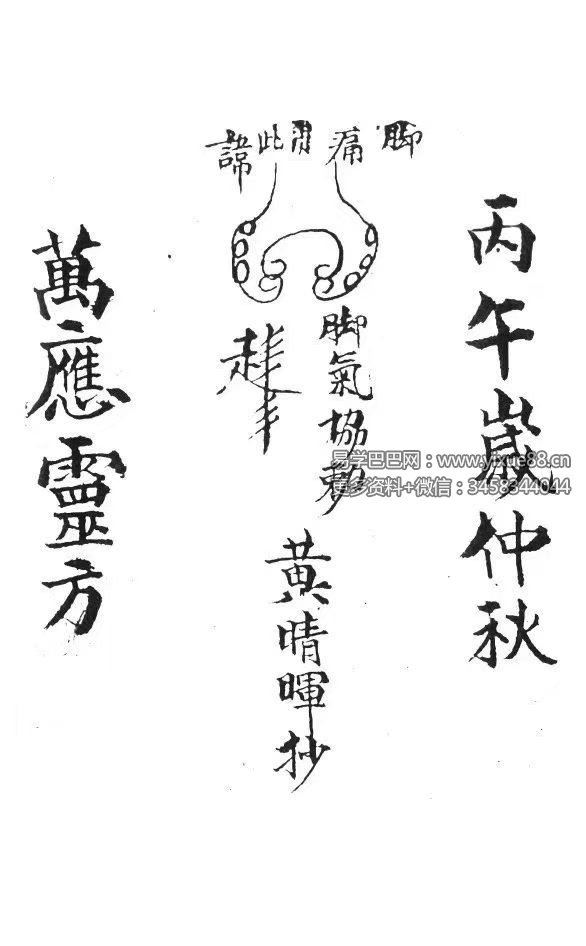 丙午歲仲秋
脚痛用此諱
脚氣協
黄晴暉抄
萬應靈方
易学巴巴网：www.yixue88.cn
更多资料+微信：3458344044